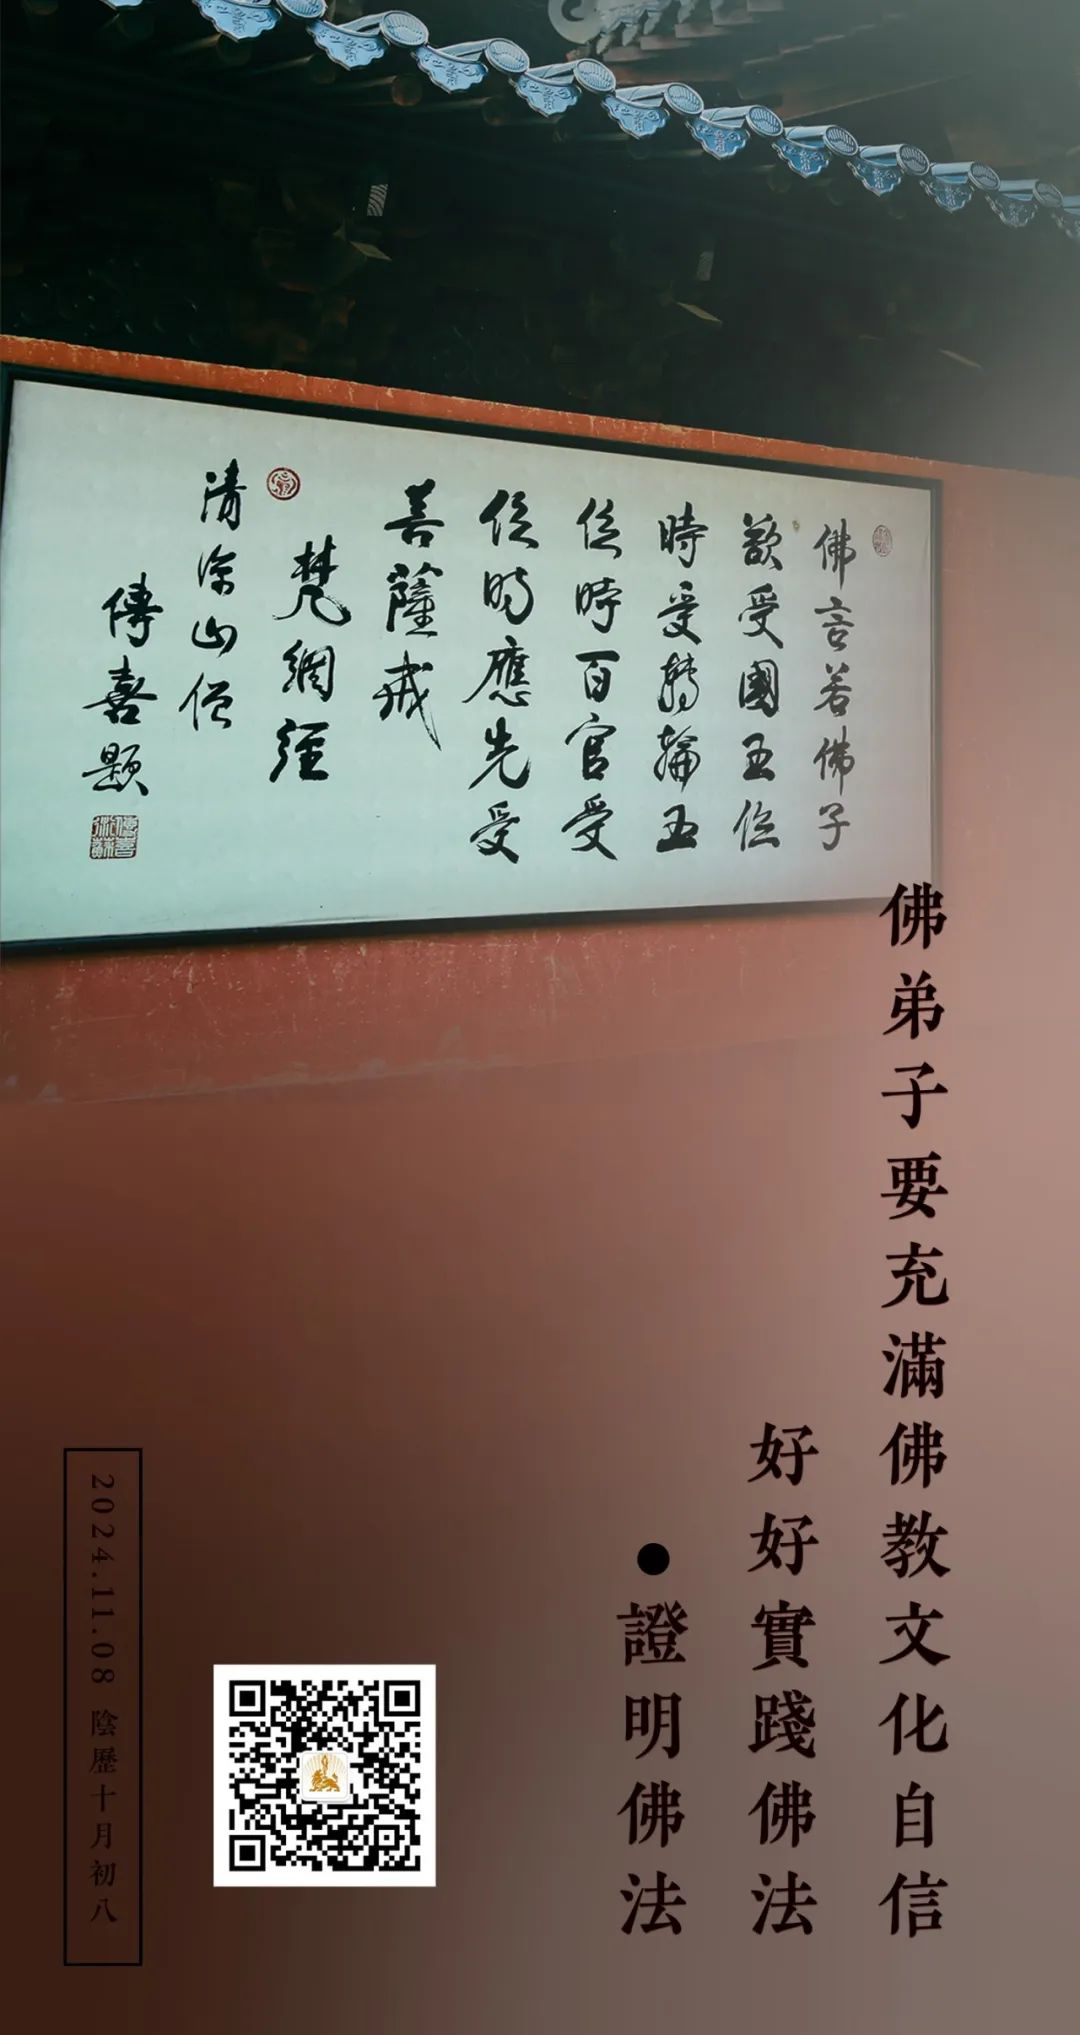 佛言若佛子
欲受國王位
時受轉輪王
位時百官受
位時應先受
菩薩戒
梵網經
清涼山僧
傳喜題
佛弟子要充滿佛教文化自信
好好實踐佛法
●證明佛法
2024.11.08 陰歷十月初八